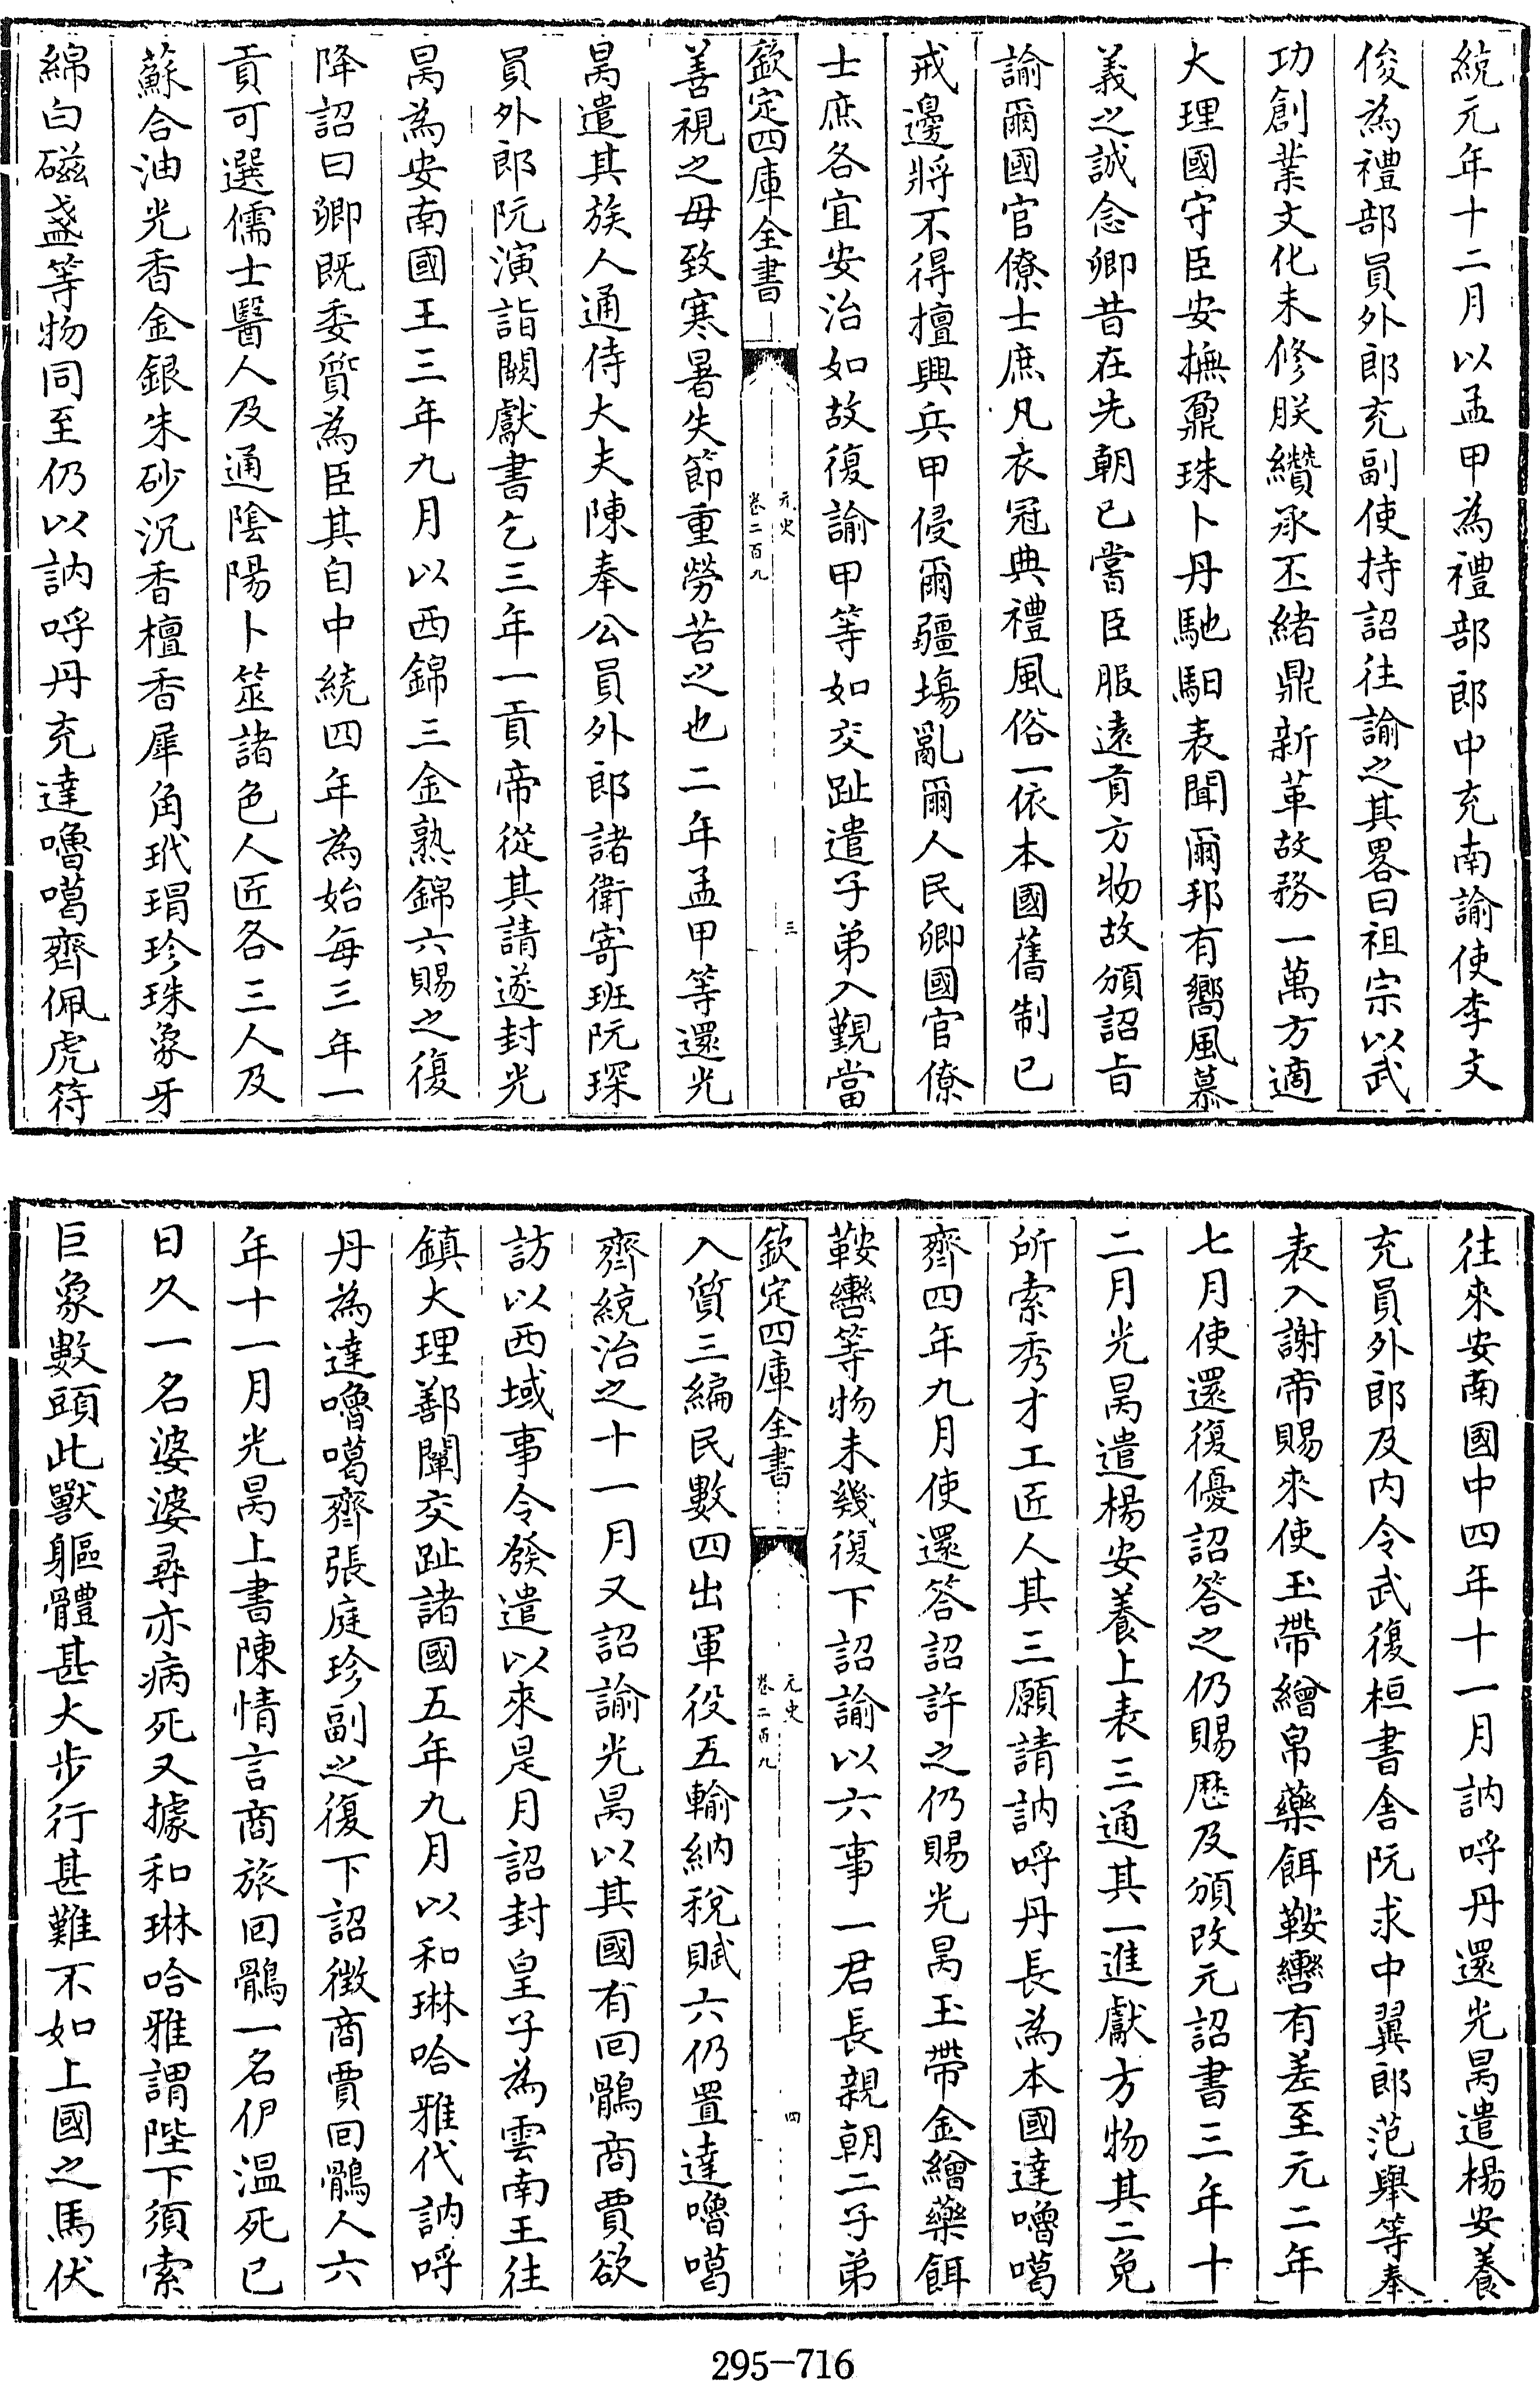 統元年十二月以孟甲為禮部郎中充南諭使李文
俊為禮部員外郎充副使持詔往諭之其畧曰祖宗以武
功創業文化未修朕纘承丕緒鼎新革故務一萬方適
大理國守臣安撫鼐珠卜丹馳馹表聞爾邦有嚮風慕
義之誠念卿昔在先朝已嘗臣服遠貢方物故頒詔旨
諭爾國官僚士庶凡衣冠典禮風俗一依本國舊制已
戒邊將不得擅興兵甲侵爾疆塲亂爾人民卿國官僚
士庶各宜安治如故復諭甲等如交趾遣子弟入覲當
欽定四庫全書
元史
卷二百九
三
善視之毋致寒暑失節重勞苦之也二年孟甲等還光
昺遣其族人通侍大夫陳奉公員外郎諸衛寄班阮琛
員外郎阮演詣闕獻書乞三年一貢帝從其請遂封光
昺為安南國王三年九月以西錦三金熟錦六賜之復
降詔曰卿既委質為臣其自中統四年為始每三年一
貢可選儒士醫人及通陰陽卜筮諸色人匠各三人及
蘇合油光香金銀朱砂沉香檀香犀角玳瑁珍珠象牙
綿白磁盞等物同至仍以訥呼丹充達嚕噶齊佩虎符
往來安南國中四年十一月訥呼丹還光昺遣楊安養
充員外郎及內令武復桓書舍阮求中翼郎范舉等奉
表入謝帝賜來使玉帶繒帛藥餌鞍轡有差至元二年
七月使還復優詔答之仍賜歴及頒改元詔書三年十
二月光昺遣楊安養上表三通其一進獻方物其二免
所索秀才工匠人其三願請訥呼丹長為本國達嚕噶
齊四年九月使還答詔許之仍賜光昺玉帶金繒藥餌
鞍轡等物未幾復下詔諭以六事一君長親朝二子弟
欽定四庫全書
元史
卷二百九
四
入質三編民數四出軍役五輸納稅賦六仍置達嚕噶
齊統治之十一月又詔諭光昺以其國有回鶻商賈欲
訪以西域事令發遣以來是月詔封皇子為雲南王往
鎮大理鄯闡交趾諸國五年九月以和琳哈雅代訥呼
丹為達嚕噶齊張庭珍副之復下詔徵商賈回鶻人六
年十一月光昺上書陳情言商旅回鶻一名伊溫死已
日久一名婆婆尋亦病死又據和琳哈雅謂陛下須索
巨象數頭此獸軀體甚大步行甚難不如上國之馬伏
295-716